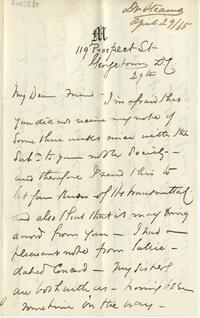 M
119 Prospect St
Georgetown DC
29th
April 29/65
My Dear Friend - I'm afraid that
you did not receive my note of
some three weeks since with the
Subn to your noble Society -
and therefore I send this to
let you know of its transmittal
and also that it may bring
a word from you - I had a
pleasant note from Sallie -
dated Concord - My Sisters
are both with us - hoping
sometime in the